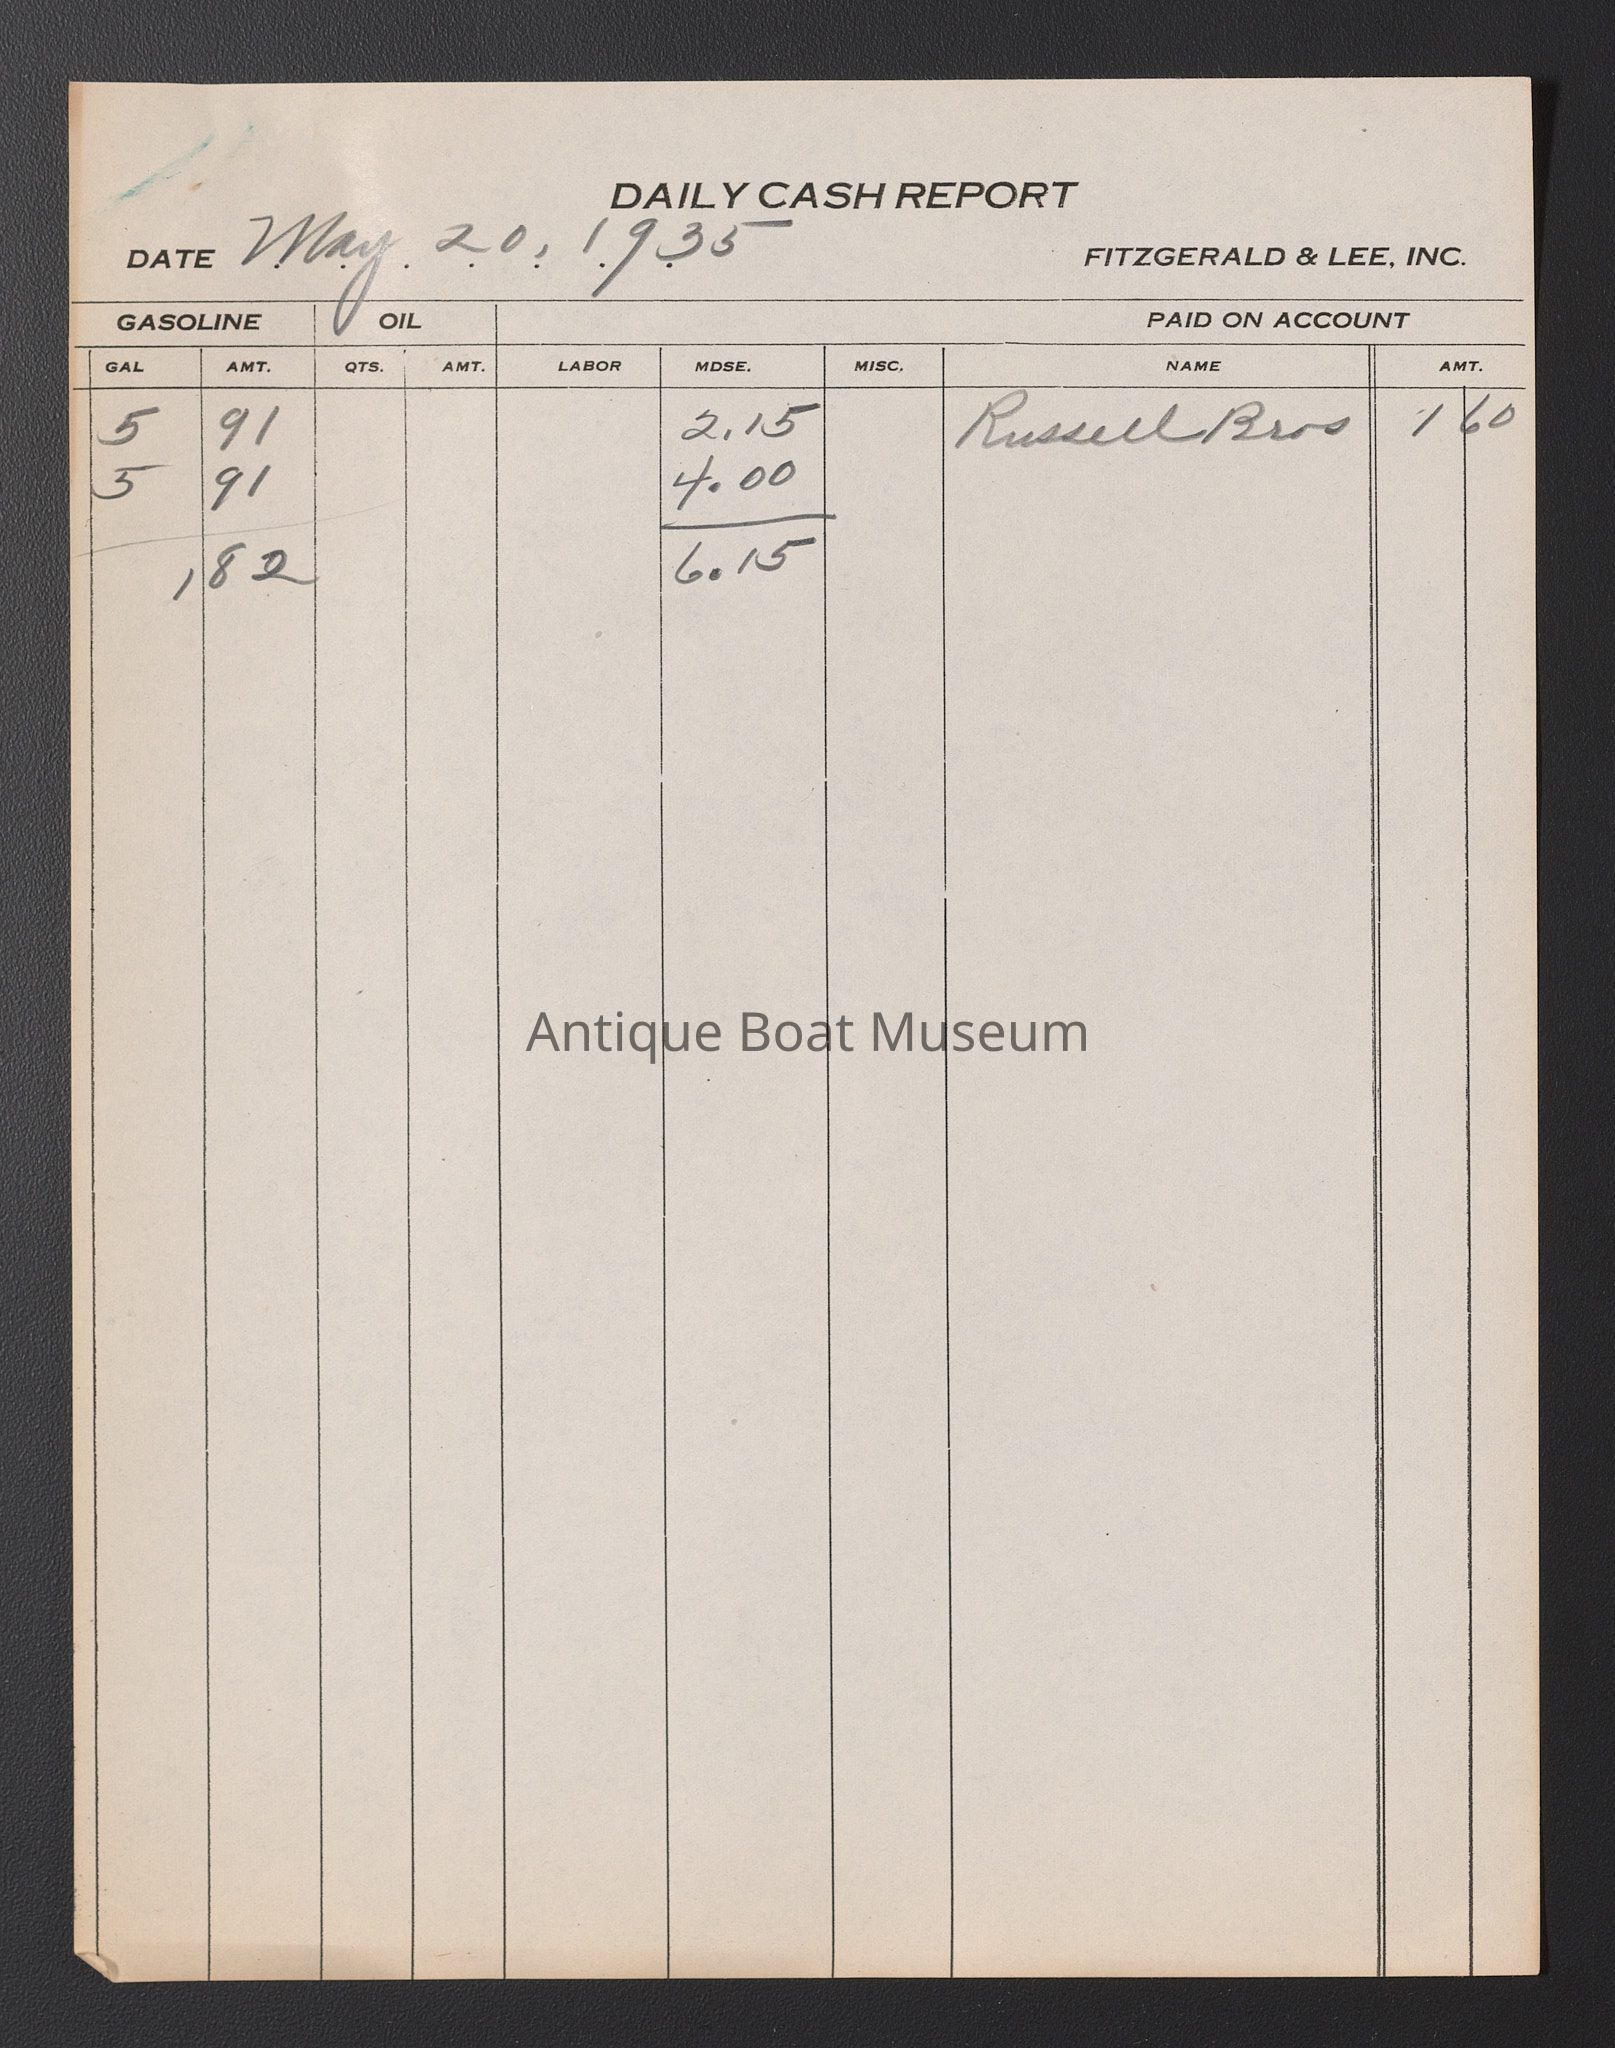 DAILY CASH REPORT
DATE May 20, 1935 FITZGERALD & LEE, INC.
GASOLINE OIL PAID ON ACCOUNT
GAL AMT. QTS. AMT. LABOR MDSE. MISC. NAME AMT.
5 91 2.15 Russell Bros 1 60
5 91 4.00
1 82 6.15
Antique Boat Museum